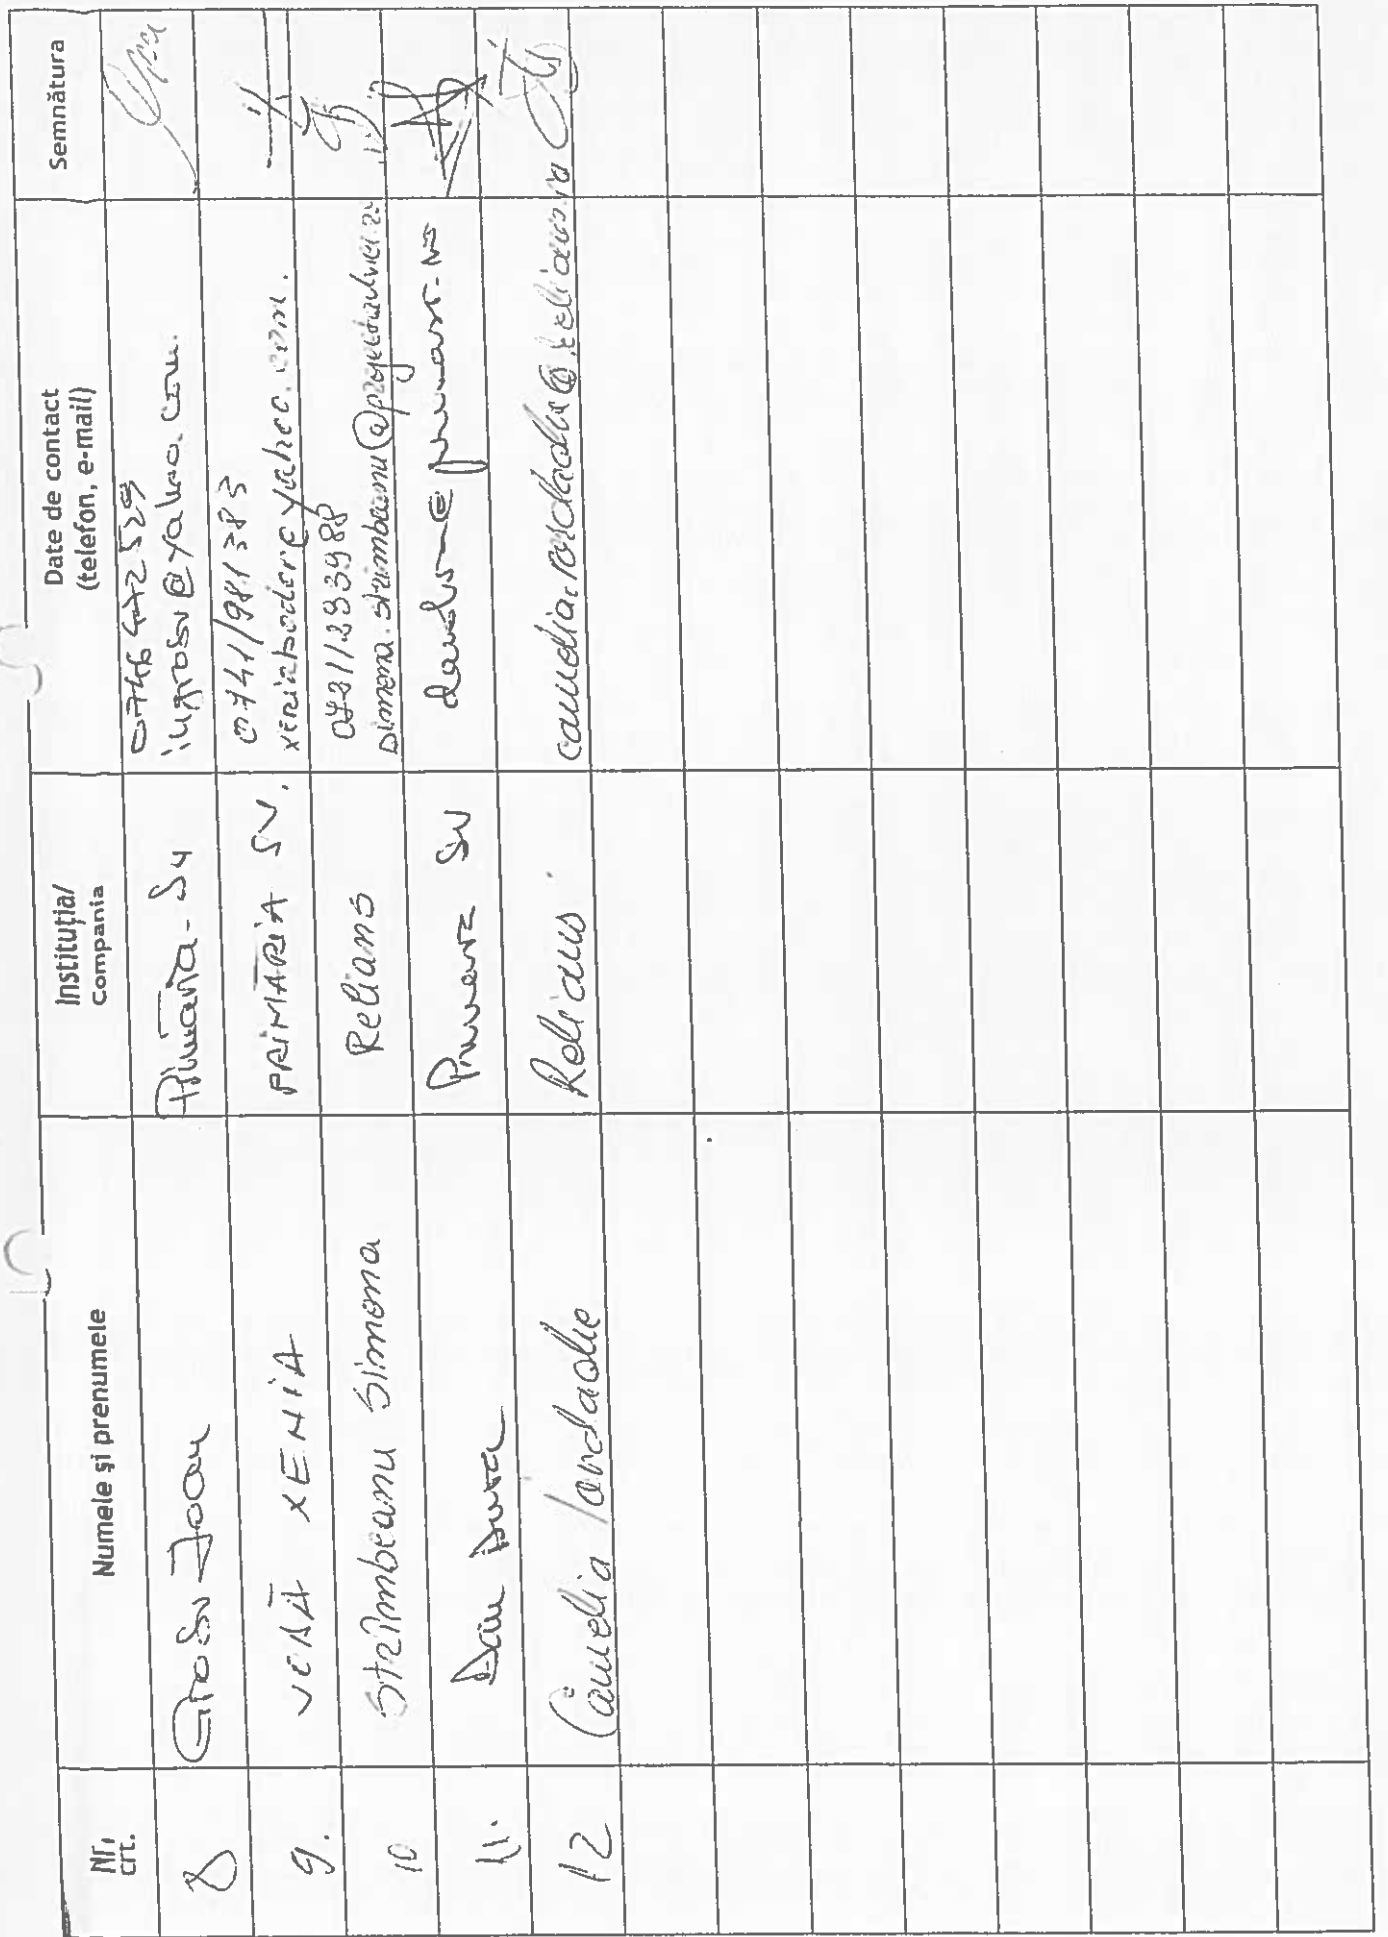 Nr. crt. Numele și prenumele Instituția/ Compania Date de contact (telefon, e-mail) Semnătura
8 Grosu Ioan Primăria - Sv 0746 472529
ingrosu@yahoo.com.
9. XENIA PRIMĂRIA SV. 0741/981383
yahoo.com.
10 Strîmbeanu Simona Relians
simona.strimbeanu@
11. Dan SV
12 Camelia Iordache Relians camelia.iordache@relians.ro